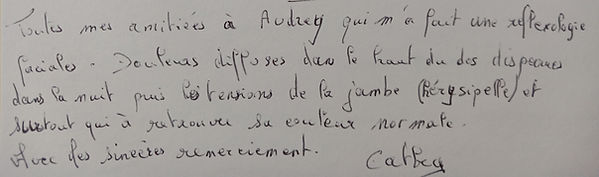 Toutes mes amitiées à Audrey qui m'a fait une réflexologie
faciales. Douleurs diffuses dans le haut du dos disparues
dans la nuit puis les tensions de la jambe (hérysipelle) et
surtout qui à retrouver sa couleur normale.
Avec des sincères remerciement. Cathy